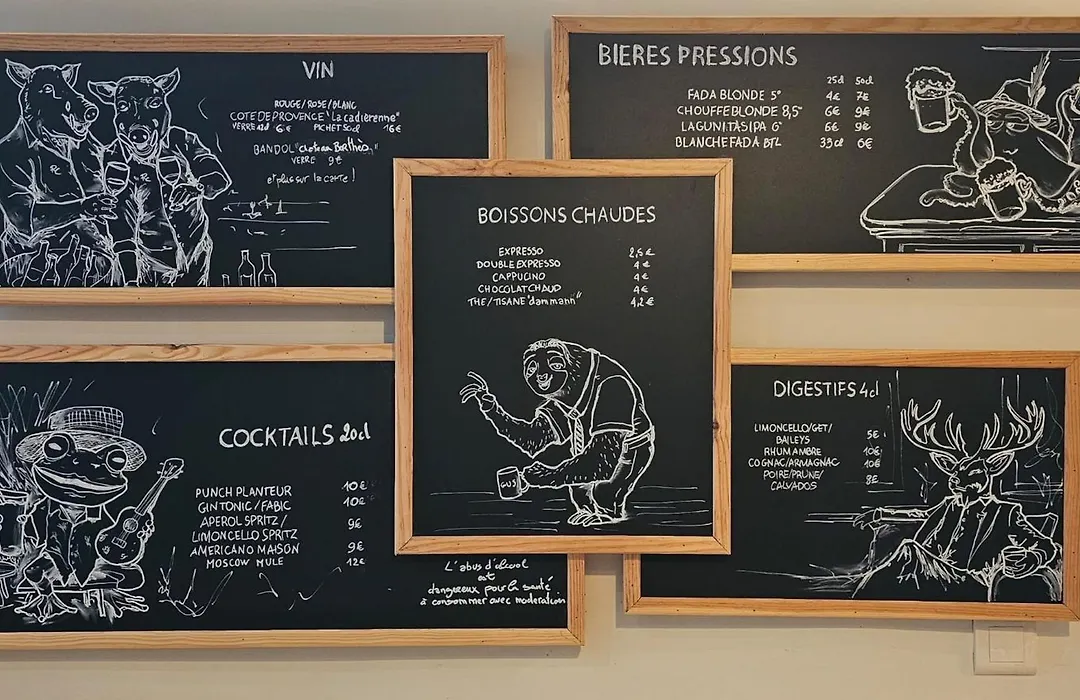 VIN
ROUGE/ROSE/BLANC
COTE DE PROVENCE "La cadierenne"
VERRE 12cl 6€ PICHET 50cl 16€
BANDOL "Chateau Barthes"
VERRE 9€
et plus sur la carte !
BIERES PRESSIONS
25cl 50cl
FADA BLONDE 5° 4€ 7€
CHOUFFE BLONDE 8,5° 6€ 9€
LAGUNITAS IPA 6° 6€ 9€
BLANCHE FADA BTL 33cl 6€
BOISSONS CHAUDES
EXPRESSO 2,5€
DOUBLE EXPRESSO 4€
CAPPUCINO 4€
CHOCOLAT CHAUD 4€
THE/TISANE "dammann" 4,2€
COCKTAILS 20cl
PUNCH PLANTEUR 10€
GIN TONIC/FABIC 10€
APEROL SPRITZ/ 9€
LIMONCELLO SPRITZ
AMERICANO MAISON 9€
MOSCOW MULE 12€
L'abus d'alcool
est
dangereux pour la santé
à consommer avec moderation
DIGESTIFS 4cl
LIMONCELLO/GET/ 5€
BAILEYS
RHUM AMBRE 10€
COGNAC/ARMAGNAC 10€
POIRE/PRUNE/ 8€
CALVADOS